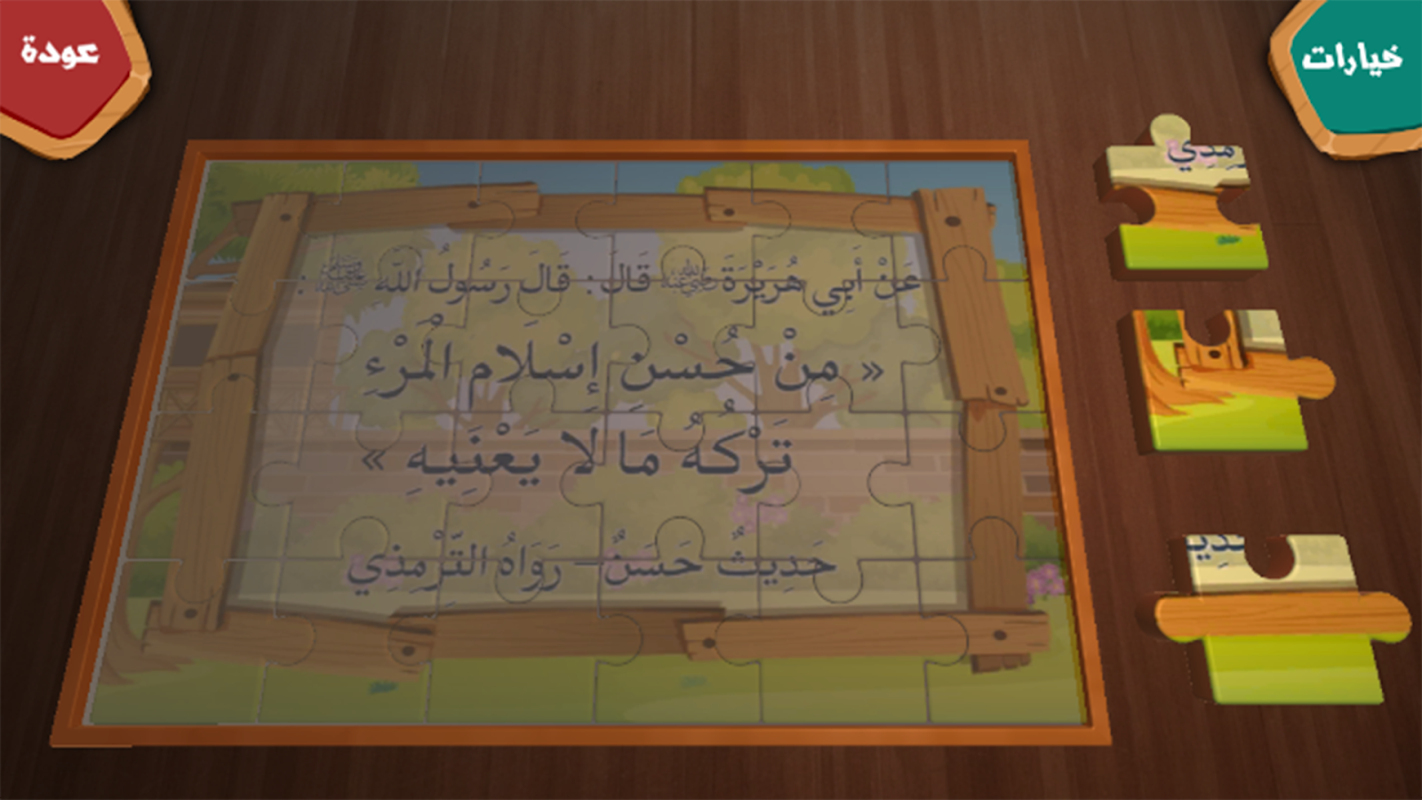 عودة
خيارات
عَنْ أَبِي هُرَيْرَةَ رضي الله عنه قَالَ : قَالَ رَسُولُ اللّه ﷺ :
« مِنْ حُسْنِ إِسْلَامِ الْمَرْءِ
تَرْكُهُ مَا لَا يَعْنِيهِ »
حَدِيثٌ حَسَنٌ – رَوَاهُ التِّرْمِذِي